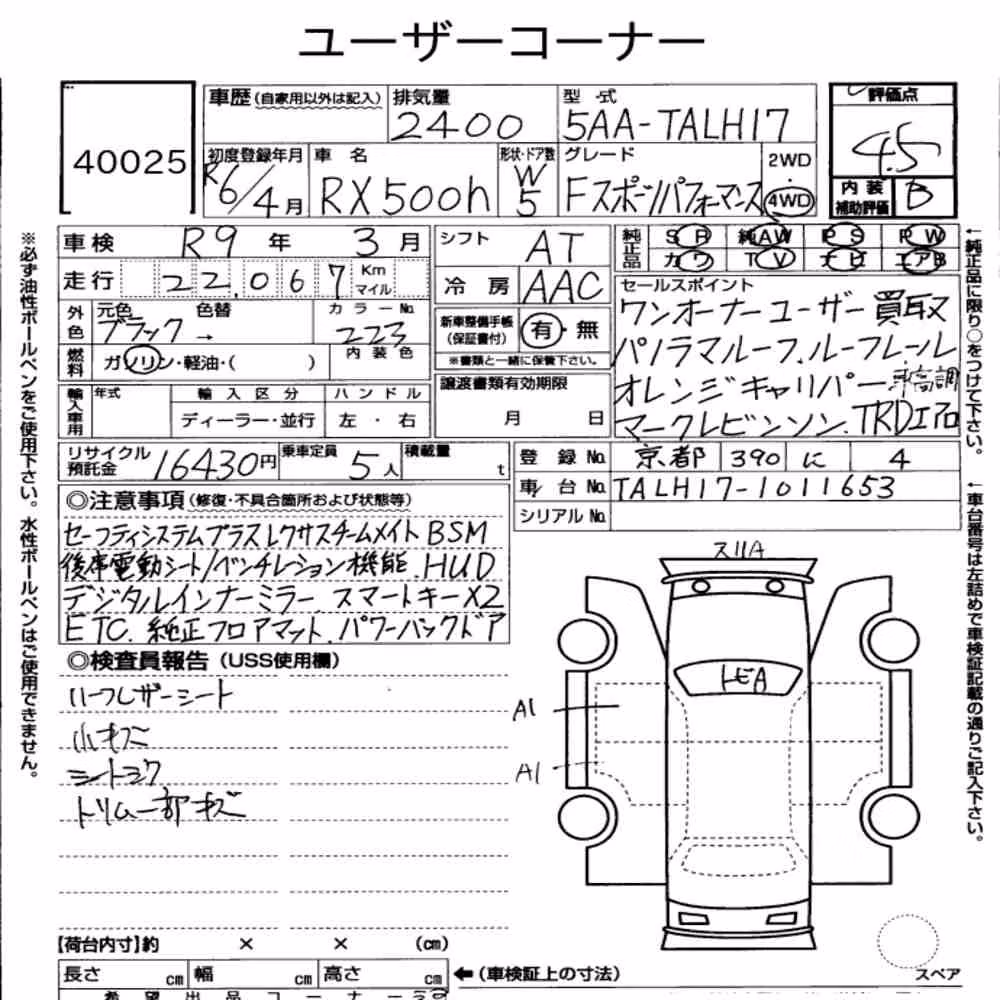 ユーザーコーナー
40025
車歴（自家用以外は記入）
排気量
2400
型式
5AA-TALH17
評価点
4.5
初度登録年月
R6/4月
車名
RX500h
形状・ドア数
W
5
グレード
Fスポーツパフォーマンス
2WD
・
4WD
内装
補助評価
B
車検 R9年 3月
シフト AT
純正品
SR 純AW PS PW
カワ TV ナビ エアB
走行 22,067 Km マイル
冷房 AAC
セールスポイント
ワンオーナーユーザー買取
パノラマルーフ.ルーフレール
オレンジキャリパー
マークレビンソン.TRDエアロ
外色 元色 色替 カラーNo.
ブラック → 223
新車整備手帳
（保証書付） 有・無
※書類と一緒に保管下さい。
燃料 ガソリン・軽油・( ) 内装色
譲渡書類有効期限
月 日
輸入車用 年式 輸入区分 ハンドル
ディーラー・並行 左・右
リサイクル預託金 16430円 乗車定員 5人 積載量 t
登録No. 京都 390 に 4
車台No. TALH17-1011653
シリアルNo.
◎注意事項（修復・不具合箇所および状態等）
セーフティシステムプラス レクサスチームメイト BSM
後席電動シート/ベンチレーション機能.HUD
デジタルインナーミラー.スマートキーX2
ETC.純正フロアマット.パワーバックドア
◎検査員報告（USS使用欄）
ハーフレザーシート
小キズ
シートシワ
トリム一部キズ
スリA
トビA
A1
A1
【荷台内寸】約 × × （cm）
長さ cm 幅 cm 高さ cm
←（車検証上の寸法）
スペア
希望出品コーナー
※必ず油性ボールペンをご使用下さい。水性ボールペンはご使用できません。
←純正品に限り○をつけて下さい。
←車台番号は左詰めで車検証記載の通りご記入下さい。